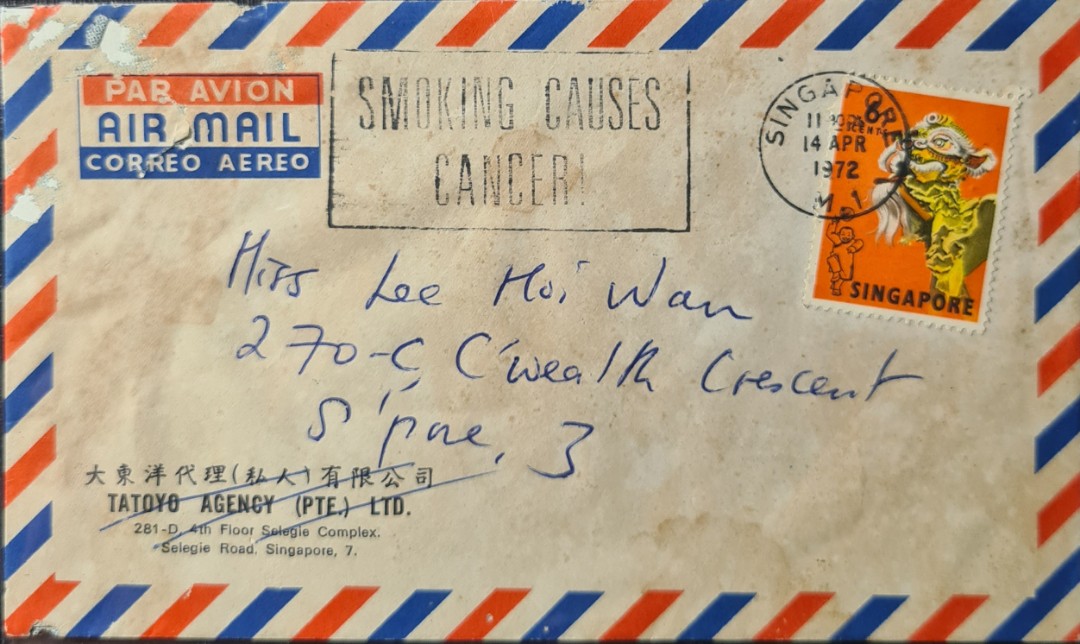 PAR AVION
AIR MAIL
CORREO AEREO
SMOKING CAUSES
CANCER!
SINGAPORE
14 APR
1972
8
CENTS
SINGAPORE
Miss Lee Hoi Wan
270-C, C'wealth Crescent
S'pore, 3
大東洋代理(私人)有限公司
TATOYO AGENCY (PTE.) LTD.
281-D, 4th Floor Selegie Complex.
Selegie Road, Singapore, 7.